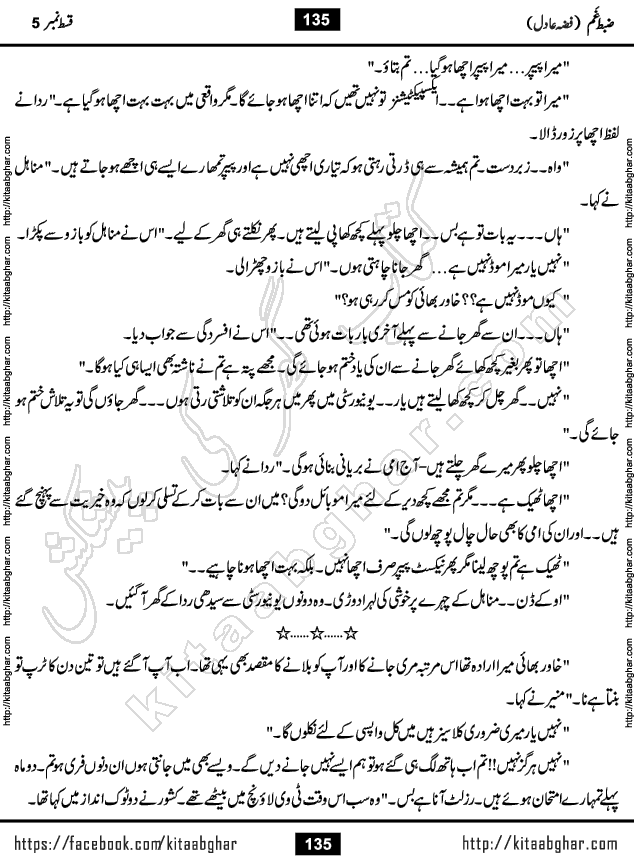 ضبطِ غم (فضہ عادل)
135
قسط نمبر 5
"میرا پیپر... میرا پیپر اچھا ہو گیا... تم بتاؤ۔"
"میرا تو بہت اچھا ہوا ہے۔۔ایکسپیکٹیشنز تو نہیں تھیں کہ اتنا اچھا ہو جائے گا۔ مگر واقعی میں بہت بہت اچھا ہو گیا ہے۔" ردا نے
لفظ اچھا پر زور ڈالا۔
"واہ۔۔زبردست۔ تم ہمیشہ سے ہی ڈرتی رہتی ہو کہ تیاری اچھی نہیں ہے اور پیپر تمھارے ایسے ہی اچھے ہو جاتے ہیں۔" مناہل
نے کہا۔
"ہاں۔۔۔یہ بات تو ہے بس۔۔اچھا چلو پہلے کچھ کھا پی لیتے ہیں۔ پھر نکلتے ہی گھر کے لیے۔" اس نے مناہل کو بازو سے پکڑا۔
"نہیں یار میرا موڈ نہیں ہے... گھر جانا چاہتی ہوں۔" اس نے بازو چھڑا لی۔
"کیوں موڈ نہیں ہے؟؟ خاور بھائی کو مس کر رہی ہو؟"
"ہاں۔۔۔ان سے گھر جانے سے پہلے آخری بار بات ہوئی تھی۔۔" اس نے افسردگی سے جواب دیا۔
"اچھا تو پھر بغیر کچھ کھائے گھر جانے سے ان کی یاد ختم ہو جائے گی۔ مجھے پتہ ہے تم نے ناشتہ بھی ایسا ہی کیا ہو گا۔"
"نہیں۔۔گھر چل کر کچھ کھا لیتے ہیں یار۔۔یونیورسٹی میں پھر میں ہر جگہ ان کو تلاشتی رتی ہوں۔۔۔گھر جاؤں گی تو یہ تلاش ختم ہو
جائے گی۔"
"اچھا چلو پھر میرے گھر چلتے ہیں-آج امی نے بریانی بنائی ہوگی۔" ردا نے کہا۔
"اچھا ٹھیک ہے۔۔۔مگر تم مجھے کچھ دیر کے لئے میرا موبائل دو گی؟ میں ان سے بات کر کے تسلی کر لوں کہ وہ خیریت سے پہنچ گئے
ہیں۔۔اور ان کی امی کا بھی حال چال پوچھ لوں گی۔"
"ٹھیک ہے تم پوچھ لینا مگر پھر نیکسٹ پیپر صرف اچھا نہیں۔ بلکہ بہت اچھا ہونا چاہیے۔۔"
"اوکے ڈن۔۔مناہل کے چہرے پر خوشی کی لہر دوڑی۔ وہ دونوں یونیورسٹی سے سیدھی ردا کے گھر آ گئیں۔
☆......☆......☆
"خاور بھائی میرا ارادہ تھا اس مرتبہ مری جانے کا اور آپ کو بلانے کا مقصد بھی یہی تھا۔ اب آپ آ گئے ہیں تو تین دن کا ٹرپ تو
بنتا ہے نا۔" منیر نے کہا۔
"نہیں یار میری ضروری کلاسیز ہیں میں کل واپسی کے لئے نکلوں گا۔"
"نہیں ہرگز نہیں!! تم اب ہاتھ لگ ہی گئے ہو تو ہم ایسے نہیں جانے دیں گے۔ ویسے بھی میں جانتی ہوں ان دنوں فری ہو تم۔ دو ماہ
پہلے تمہارے امتحان ہوئے ہیں۔ رزلٹ آنا ہے بس۔" وہ سب اس وقت ٹی وی لاؤنچ میں بیٹھے تھے۔ کشور نے دو ٹوک انداز میں کہا تھا۔
https://facebook.com/kitaabghar
135
http://kitaabghar.com
http://kitaabghar.com http://kitaabghar.com http://kitaabghar.com http://kitaabghar.com http://kitaabghar.com http://kitaabghar.com
http://kitaabghar.com http://kitaabghar.com http://kitaabghar.com http://kitaabghar.com http://kitaabghar.com http://kitaabghar.com
کتاب گھر کی پیشکش
kitaabghar.com